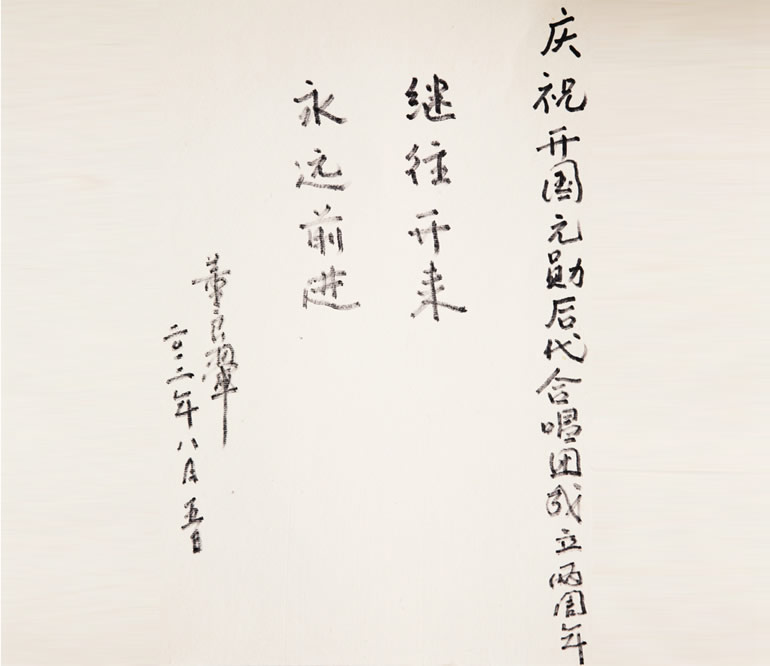 庆祝开国元勋后代合唱团成立两周年
继往开来
永远前进
董良翚
二〇一二年八月五日